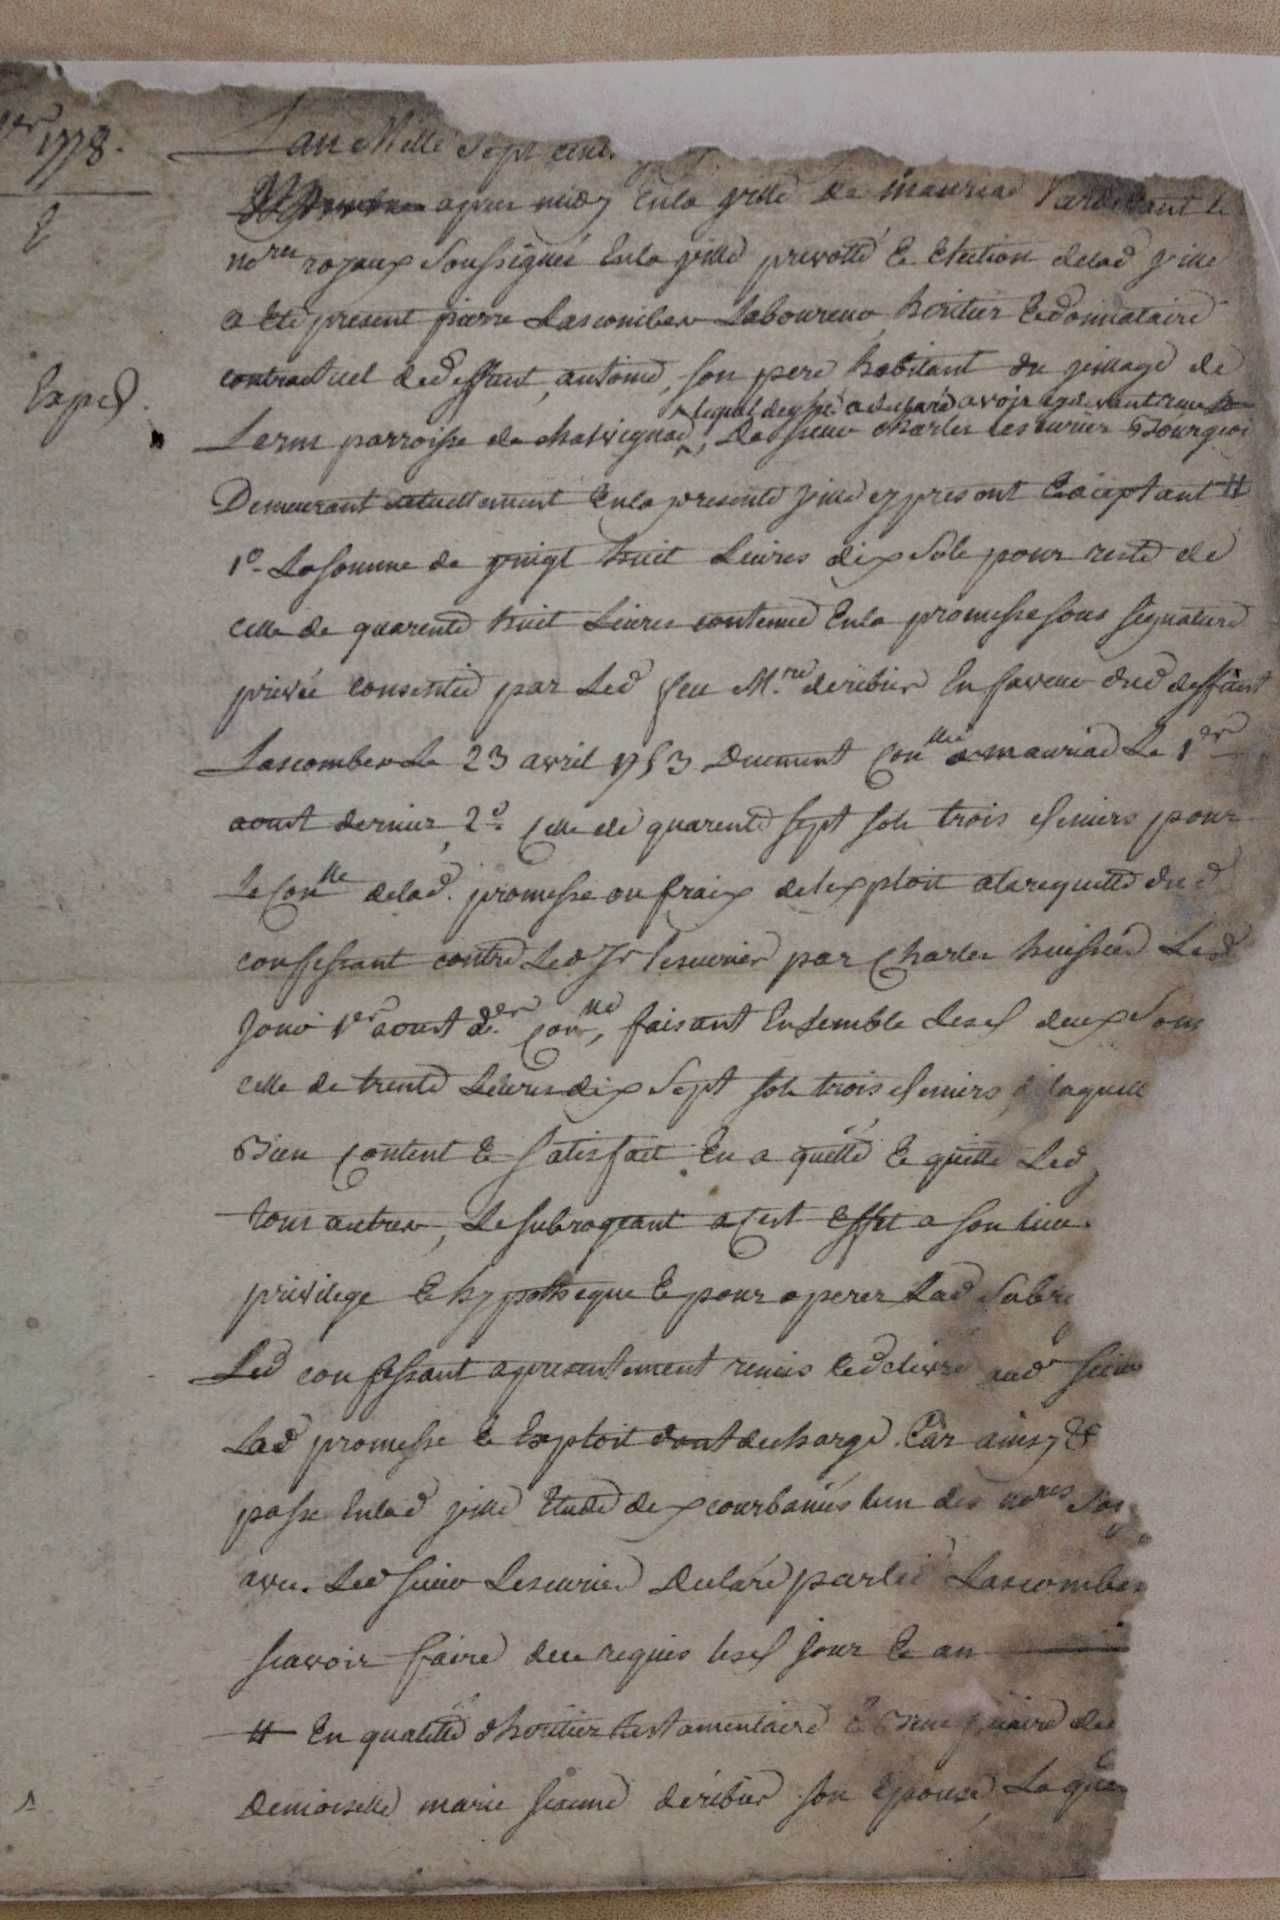 1778.
Lan Mille Sept cent
apres midy Enla ville de mauriac Pardevant le
nores royaux Soussignés Enla ville prevotté & Election delad ville
a Eté present pierre Lascombes Laboureur heritier & donnataire
contractuel de deffunt antoine, son pere habitant du village de
Exped.
lequel de gré a declaré avoir cy devant receu
Lerm parroisse de chalvignac, De sieur charles Lescurier Bourgeois
Demeurant actuellement Enla presente ville cy present & aceptant #
1o. La somme de vingt huit Livres dix Sols pour reste de
celle de quarente huit Livres contenue Enla promesse sous signature
privée consentie par Led feu Mre. deribier En faveur dud deffunt
Lascombes Le 23 avril 1753 Duement Conllé a mauriac Le 1er
aoust dernier, 2o. Celle de quarente sept sols trois deniers pour
Le Conlle delad. promesse ou fraix de lexploit a la requette dud
confessant contre Led Sr lescurier par Charles huissier Led
Jour 1er aoust der Conllé, faisant Ensemble Lesd deux Som
celle de trente Livres dix Sept sols trois deniers, de laquelle
Bien Content & satisfait En a quitté & quitte Led
tous autres, Le subrogeant a Cest Effet a son lieu
privilege & hypotheque & pour operer Lad Subro
Led confessant a presentement remis & delivré aud sieur
Lad promesse & Exploit dont decharge. Car ainsy &
passé Enlad ville Etude de courbaniés lun des nores Sou
avec Led sieur Lescurier Declaré par led Lascombes
scavoir faire de ce requis lesd jour & an
# En qualité dheritier testamentaire &
Demoiselle marie jeanne deribier son Epouse, Laque